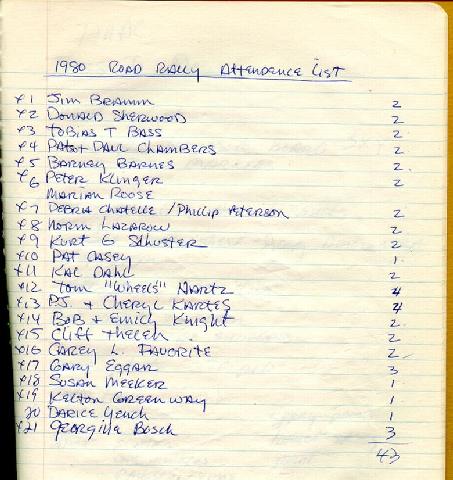 1980 ROAD RALLY Attendence List
x1 Jim BRAMM 2
x2 DONALD SHERWOOD 2
x3 TOBIAS T BASS 2
x4 PAT + DAVL CHAMBERS 2
x5 BARNEY BARNES 2
x6 Peter KLINGER 2
MARIAN ROOSE
x7 DEBRA CHATELLE / Phillip Peterson 2
x8 NORM LAZAROW 2
x9 KURT G SCHUSTER 2
x10 PAT CASEY 1
x11 KAL DAHL 2
x12 Tom "Wheels" NARTZ 4
x13 P.J. + CHERYL KARTES 4
x14 BOB + Emily Knight 2
x15 Cliff Thelen 2
x16 CAREY L. FAVORITE 2
x17 GARY EGGAR 3
x18 SUSAN MEEKER 1
x19 KELTON GREENWAY 1
20 DARICE 1
x21 Georgine Bosch 3
43